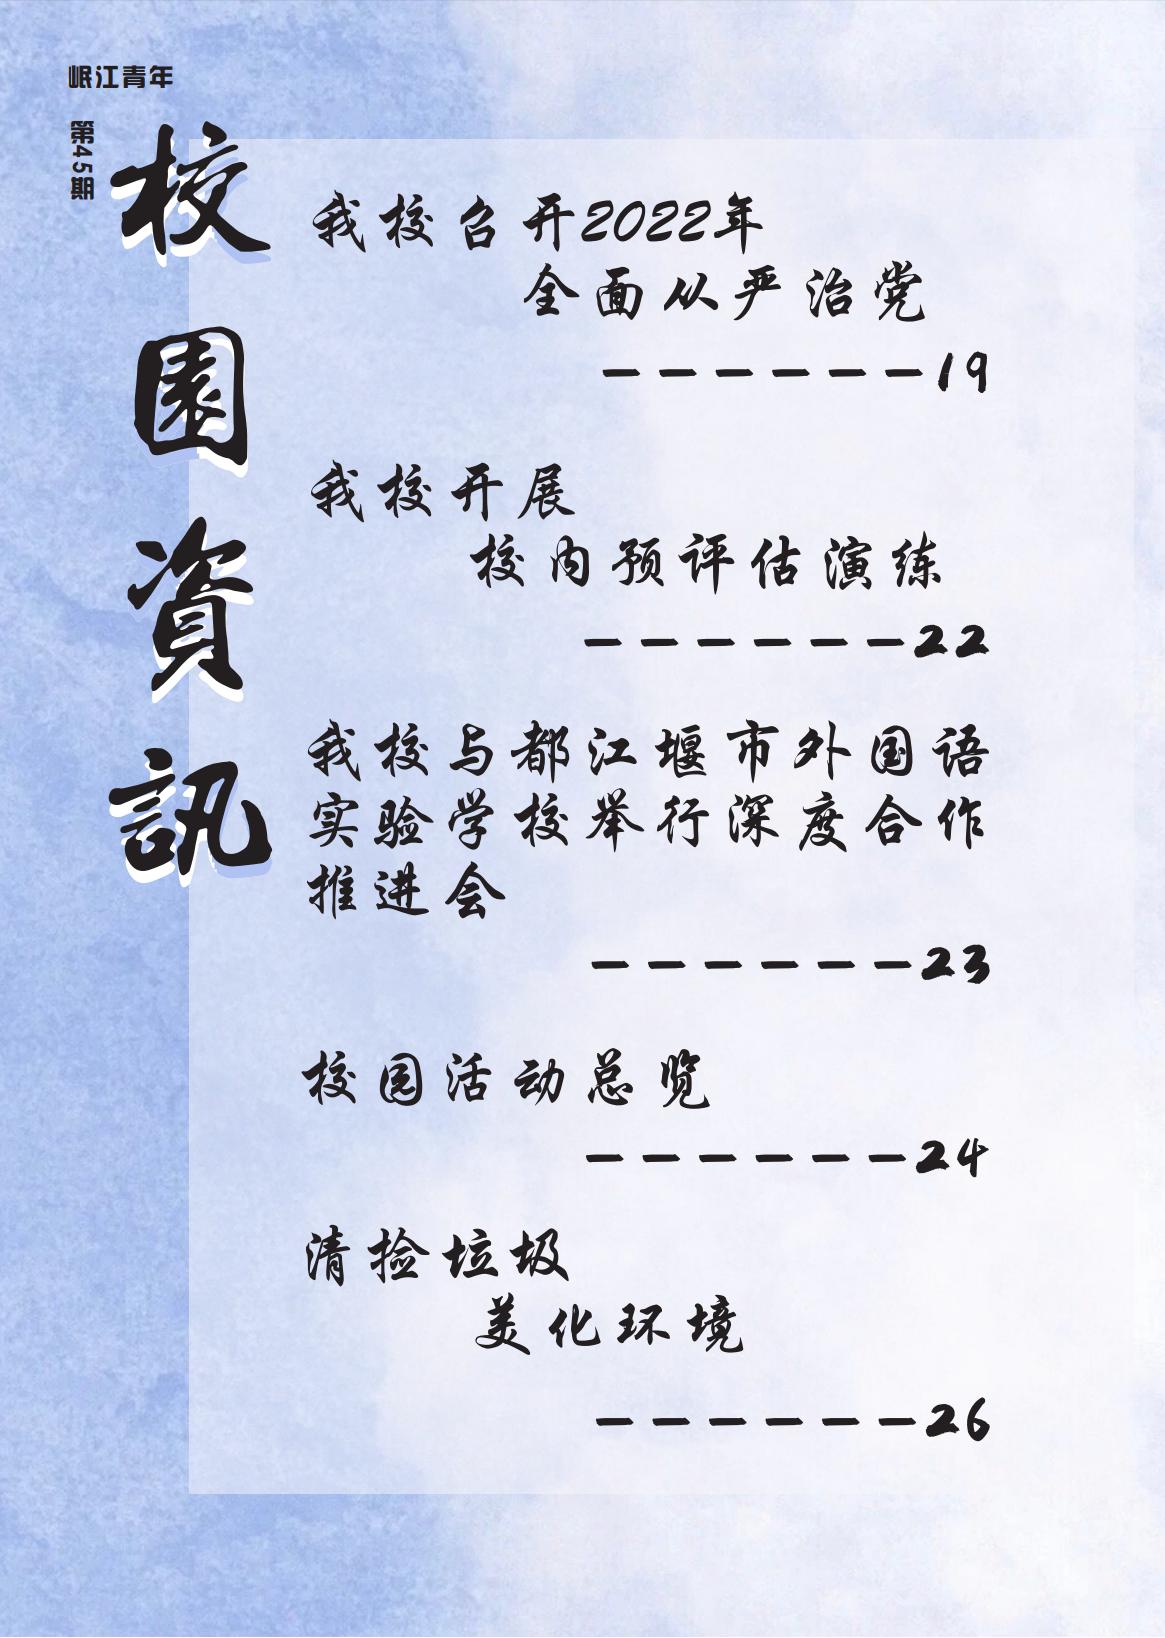 岷江青年
第45期
校園資訊
我校召开2022年
全面从严治党
——————19
我校开展
校内预评估演练
——————22
我校与都江堰市外国语
实验学校举行深度合作
推进会
——————23
校园活动总览
——————24
清捡垃圾
美化环境
——————26